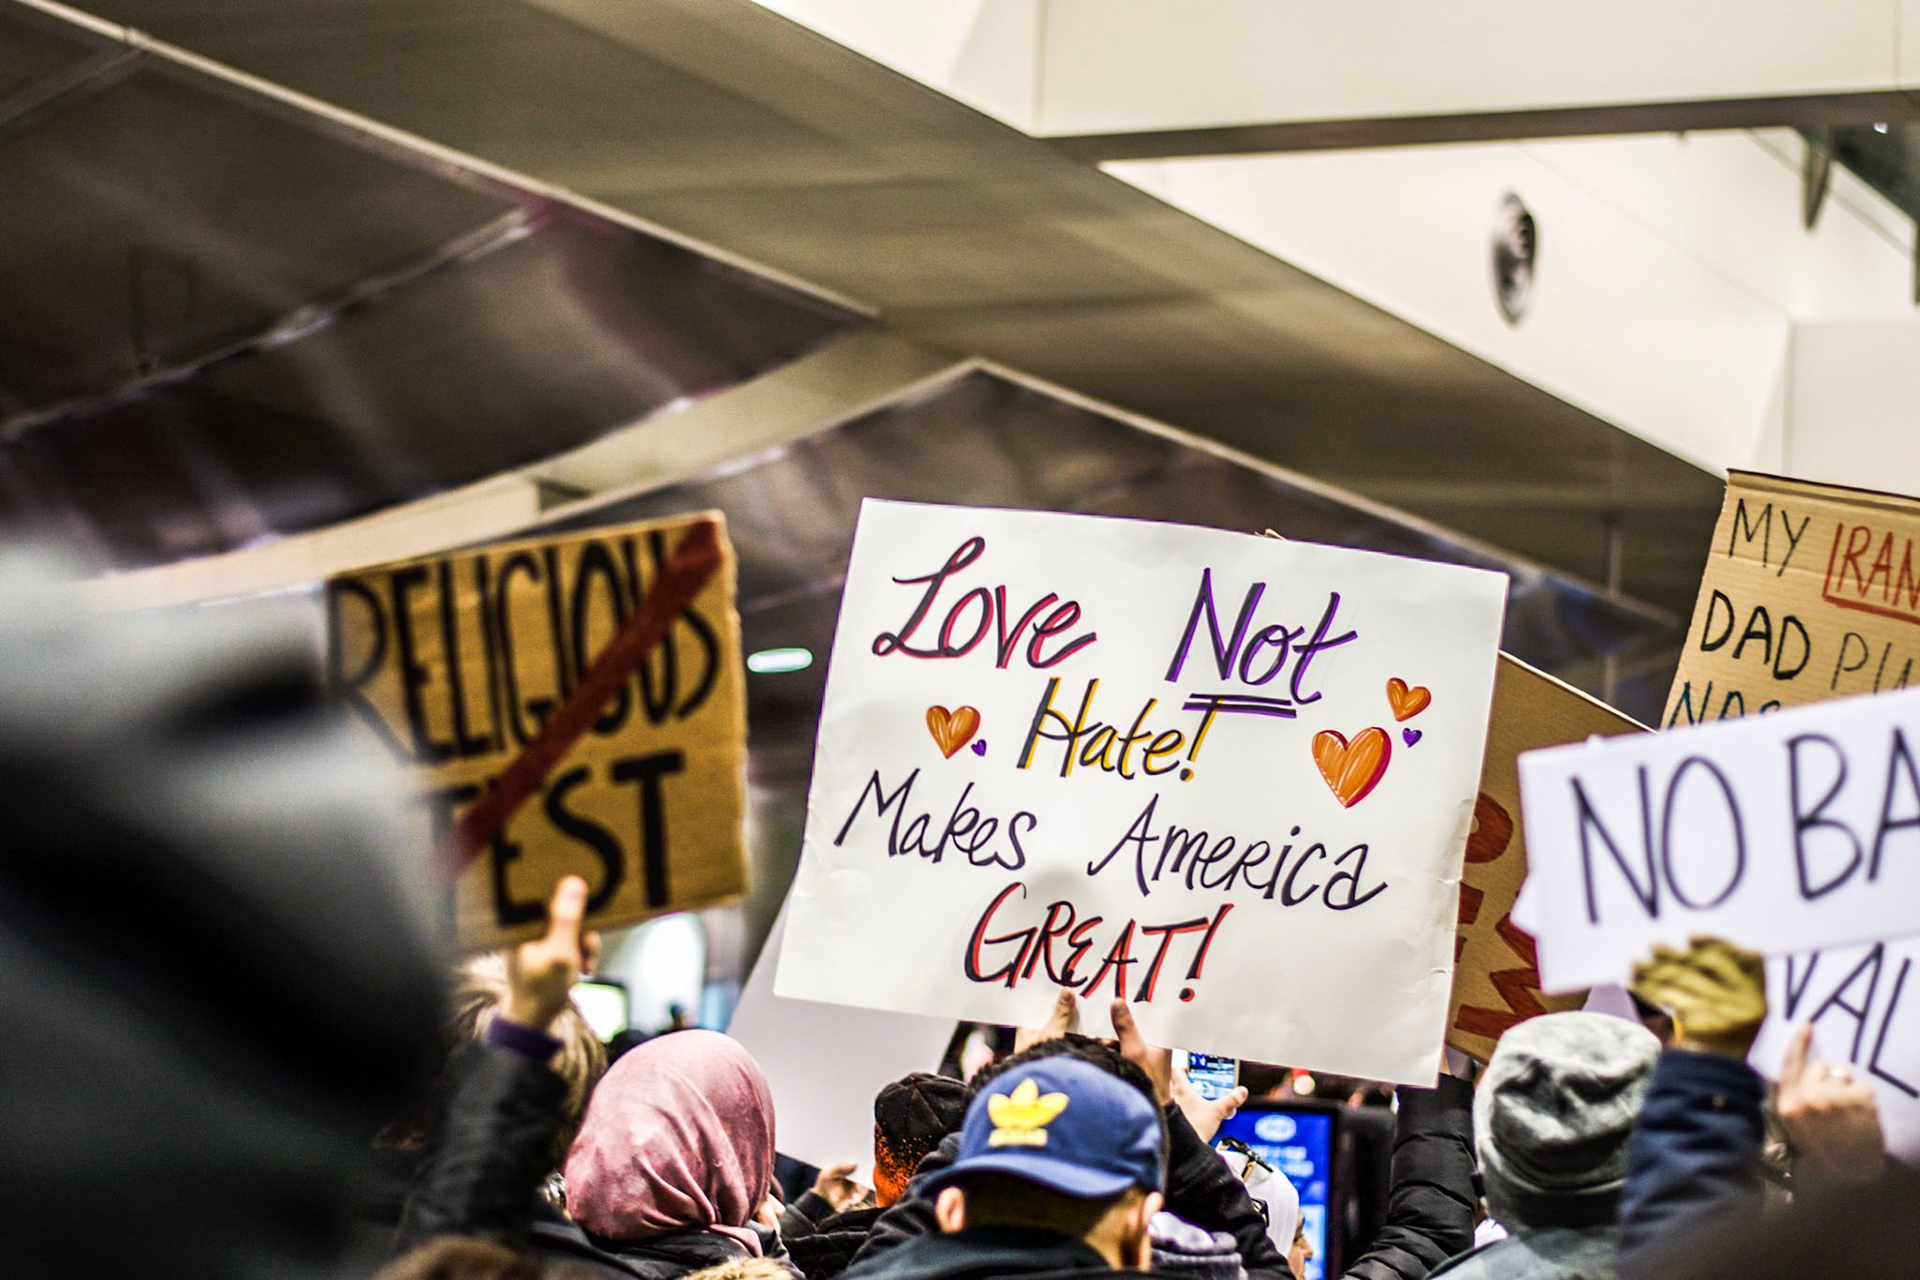 RELIGIOUS
TEST
Love Not
Hate!
Makes America
GREAT!
MY IRAN
DAD PU
NO BA
VAL